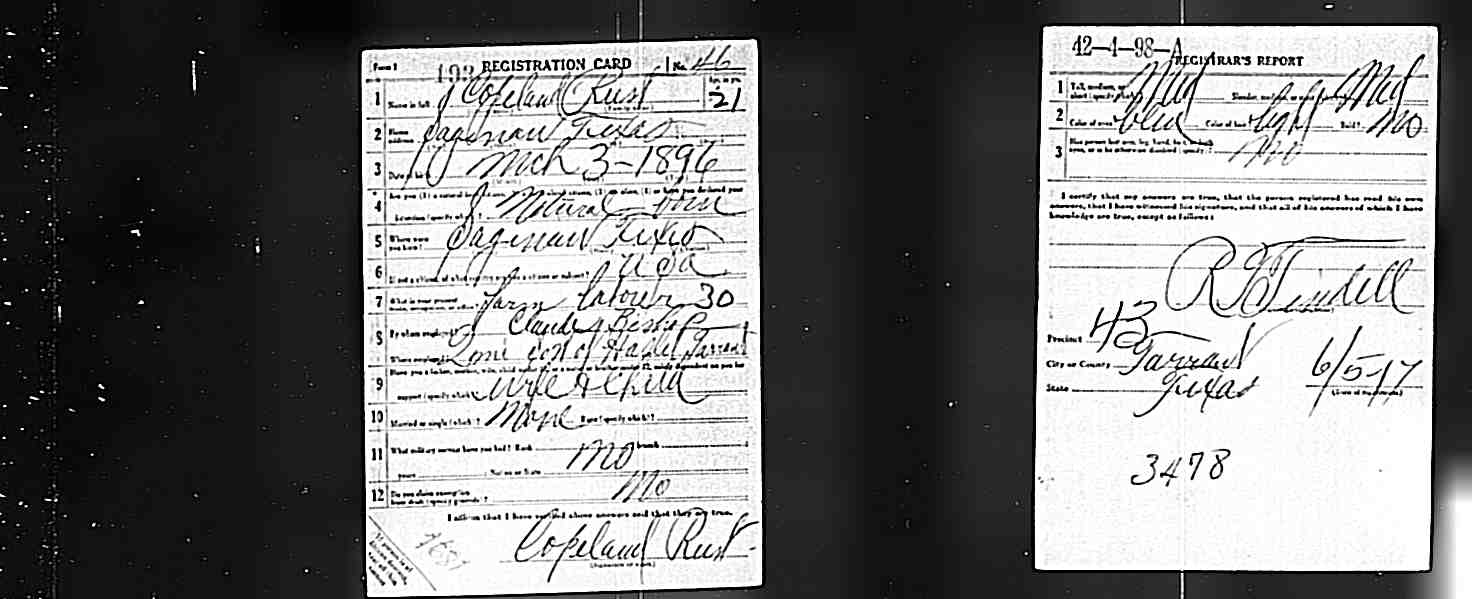 Form 1 193 REGISTRATION CARD No. 46
1 Name in full Copeland Rust Age, in yrs. 21
2 Home address Saginaw Texas
3 Date of birth Mch 3-1896
4 Natural born
5 Where were you born? Saginaw Texas
6 USA
7 What is your present Farm laborer 30
8 By whom employed? Claude Bishop
Where employed? 2 mi of Haslet Tarrant
9 Have you a father, mother, wife, child under 12, or a sister or brother under 12, solely dependent on you for
support (specify which)? Wife & Child
10 Married or single (which)? Race (specify which)?
11 What military service have you had? Rank branch
years Nation or State No
12 Do you claim exemption
from draft (specify grounds)? No
I affirm that I have verified above answers and that they are true.
Copeland Rust
(Signature or mark)
42-4-98-A
REGISTRAR'S REPORT
1 Tall, medium, or
short (specify which)? Med Slender, medium, or stout (which)? Med
2 Color of eyes? blue Color of hair? light Bald? No
3 Has person lost arm, leg, hand, foot, or both
eyes, or is he otherwise disabled (specify)? No
I certify that my answers are true, that the person registered has read his own
answers, that I have witnessed his signature, and that all of his answers of which I have
knowledge are true, except as follows:
Tindell
Precinct 43
City or County Tarrant
State Texas 6/5-17
(Date of registration)
3478